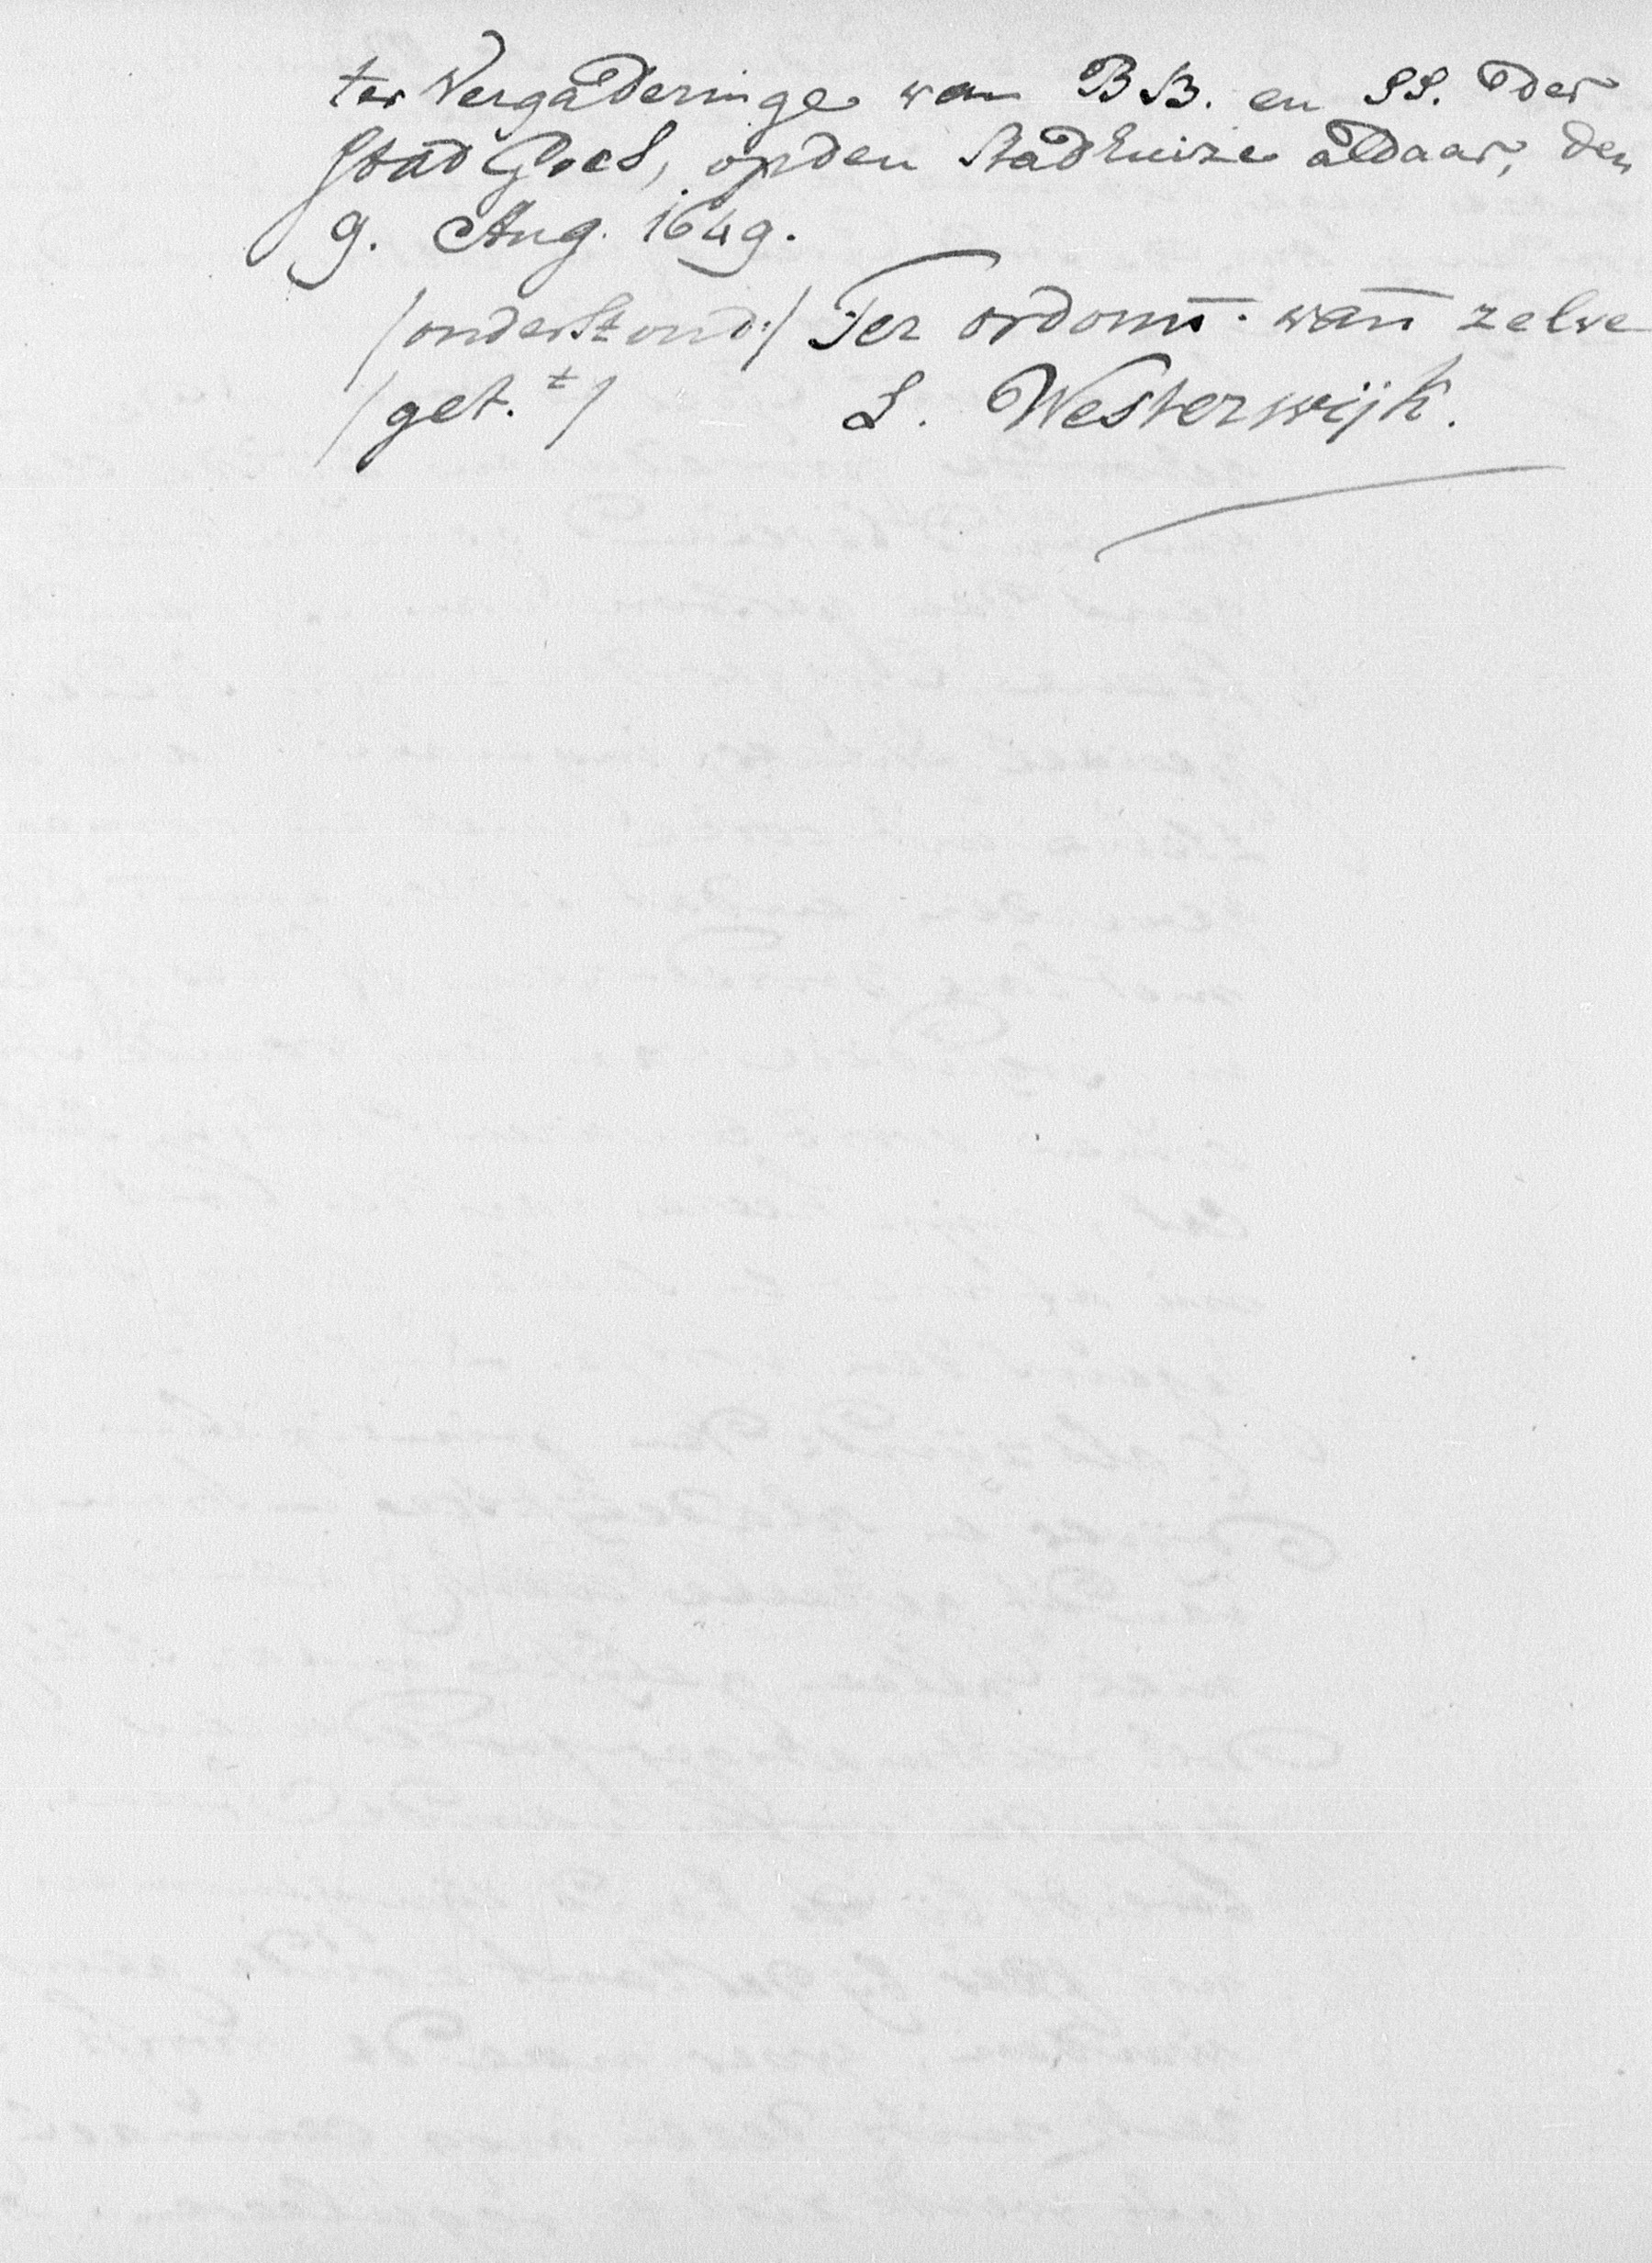 ter Vergaderinge van BB. en SS. der
Stad Goes, op den Stadhuize aldaar, den
9. Aug. 1649.
/onderstond:/ Ter ordonn̄. van̄ zelve
/get.t/ L. Westerwijk.